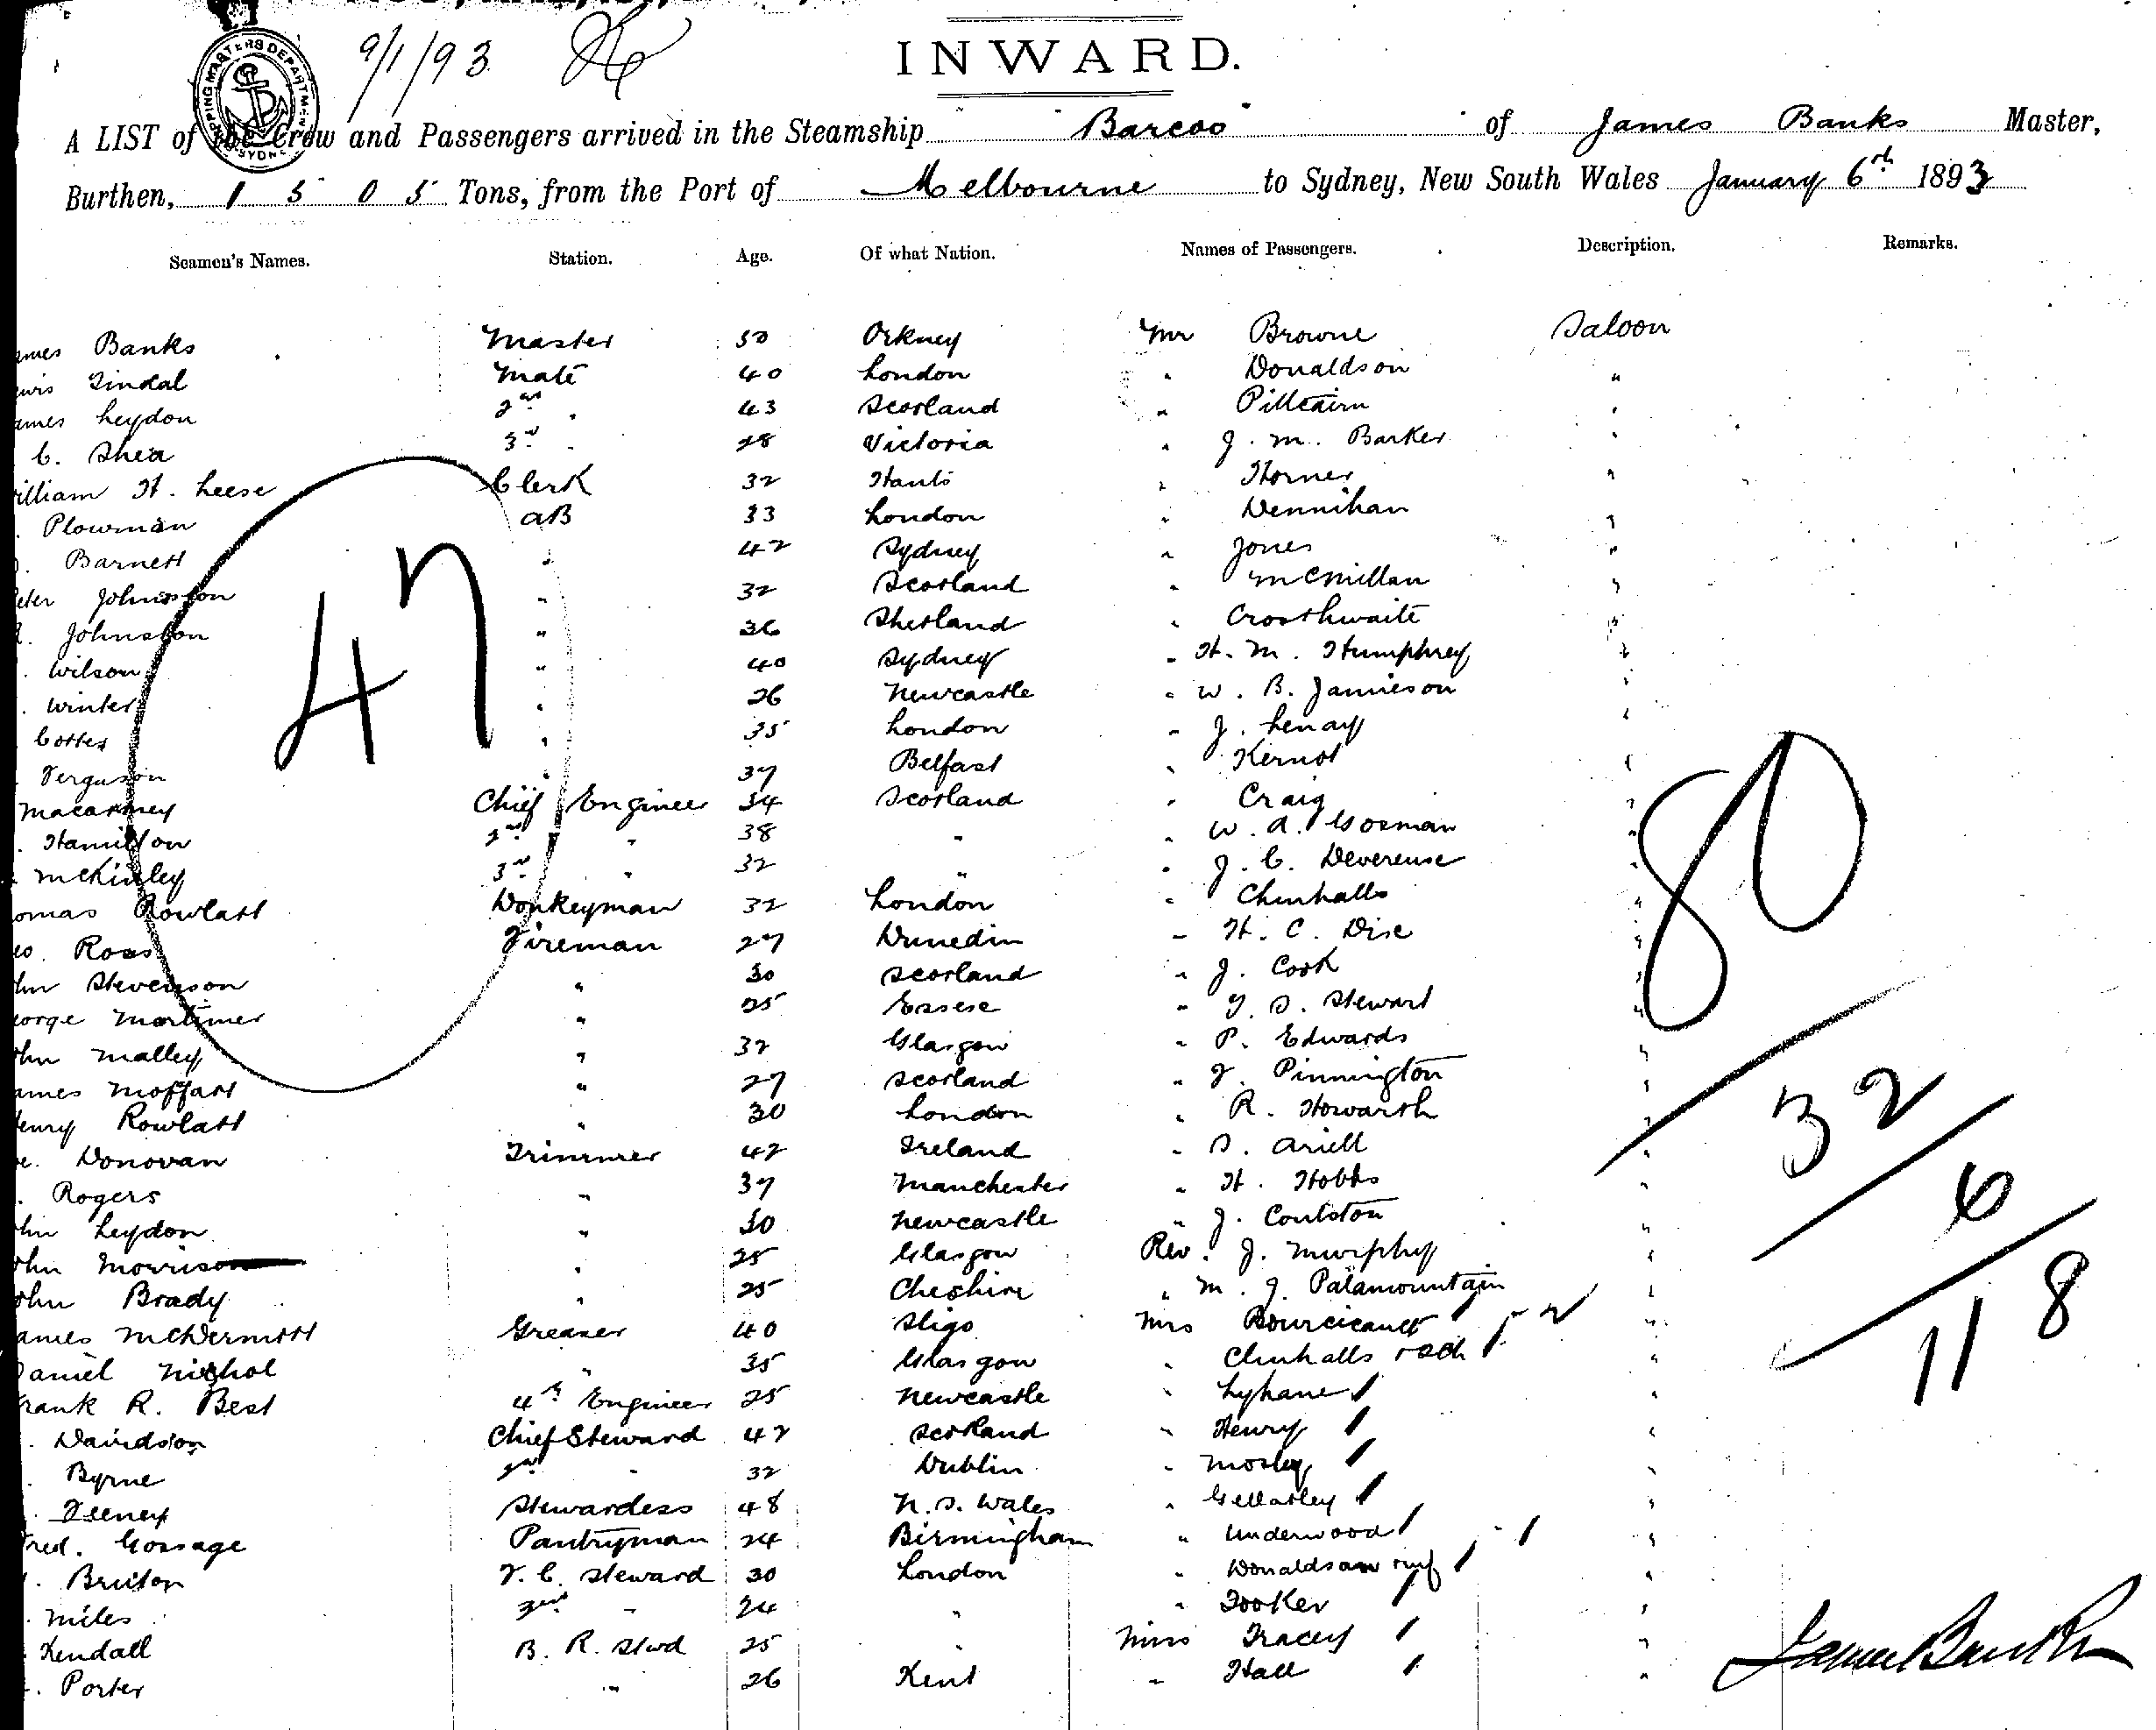 9/1/93
INWARD.
SHIPPING MASTERS DEPARTMENT SYDNEY
A LIST of the Crew and Passengers arrived in the Steamship "Barcoo" of James Banks Master,
Burthen, 1505 Tons, from the Port of Melbourne to Sydney, New South Wales January 6th 1893
Seamen's Names. Station. Age. Of what Nation. Names of Passengers. Description. Remarks.
ames Banks Master 50 Orkney Mr Browne Saloon
ewis Tindal Mate 40 London " Donaldson "
ames Leydon 2nd " 43 Scotland " Pillcairn "
C. Shea 3rd " 28 Victoria " J. M. Barker "
illiam H. Leese Clerk 32 Hants " Horner "
Plowman AB 33 London " Wennihan "
Barnett " 42 Sydney " Jones "
eter Johnston " 32 Scotland " McMillan "
Johnston " 36 Shetland " Crosthwaite "
Wilson " 40 Sydney " H. M. Humphrey "
Winter " 26 Newcastle " W. B. Jamieson "
Cottes " 35 London " J. Lenay "
Ferguson " 37 Belfast " Kernot "
Macartney Chief Engineer 34 Scotland " Craig "
Hamilton 2nd " 38 " " W. A. Gorman "
McKinley 3rd " 32 " " J. C. Devereuse "
omas Rowlatt Donkeyman 32 London " Chinhalls "
eo. Ross Fireman 27 Dunedin " H. C. Dise "
ohn Stevenson " 30 Scotland " J. Cook "
eorge Mortimer " 25 Essese " J. S. Stewart "
ohn Malley " 32 Glasgow " P. Edwards "
ames Moffatt " 27 Scotland " J. Pinnington "
enry Rowlatt " 30 London " R. Howarth "
Donovan Trimmer 42 Ireland " S. Ariell "
Rogers " 37 Manchester " H. Hobbs "
ohn Leydon " 30 Newcastle " J. Coulston "
ohn Morrison " 25 Glasgow Rev. J. Murphy "
ohn Brady " 25 Cheshire " M. J. Palamountain "
ames McDermott Greaser 40 Sligo Mrs Bourcicault "
Daniel Nichol " 35 Glasgow " Chinhalls "
rank R. Best 4th Engineer 25 Newcastle " Lyhane "
Davidson Chief Steward 42 Scotland " Henry "
Byrne 2nd " 32 Dublin " Mosley "
Feeney Stewardess 48 N. S. Wales " Gellatley "
red. Gossage Pantryman 24 Birmingham " Underwood "
Bruton F. C. Steward 30 London " Donaldson "
Miles 2nd " 24 " " Tooker "
Kendall B. R. Stwd 25 " Miss Tracey "
Porter " 26 Kent " Hall "
47
80
32
6
118
James Banks